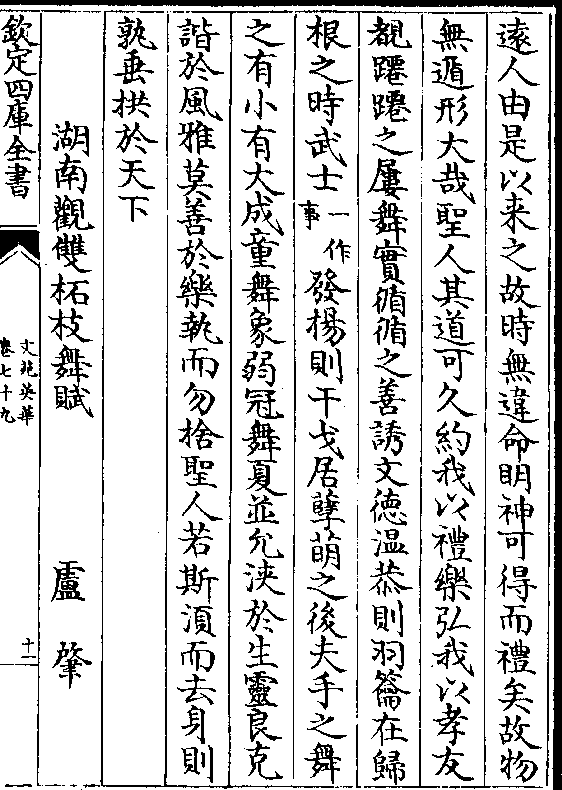 遠人由是以来之故時無違命明神可得而禮矣故物
無遁形大哉聖人其道可久約我以禮樂弘我以孝友
覩蹮蹮之屢舞實循循之善誘文徳温恭則羽籥在歸
根之時武士一作事發揚則干戈居孽萌之後夫手之舞
之有小有大成童舞象弱冠舞夏並允浹於生靈良克
諧於風雅莫善於樂執而勿捨聖人若斯湏而去身則
孰垂拱於天下
湖南觀雙柘枝舞賦 盧肇
欽定四庫全書
文苑英華
卷七十九
十一